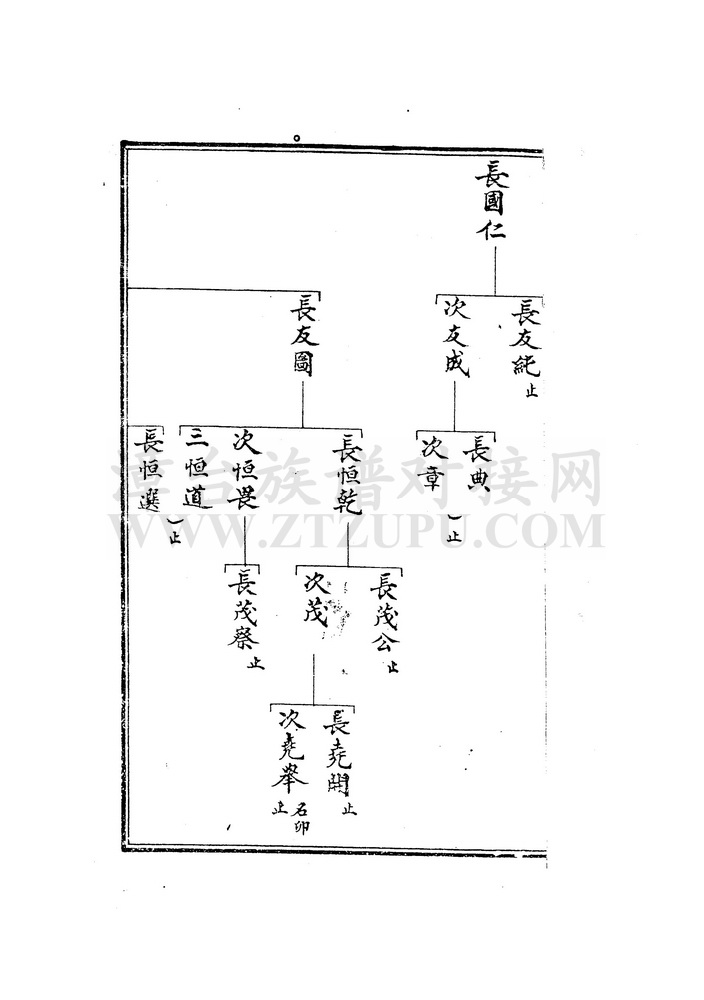 長國仁
長友純 止
次友成
長友圖
長典
次章
)止
長恒乾
次恒畏
三恒道
長恒選
)止
長茂公 止
次茂
長茂察 止
長堯開 止
次堯舉 名印 止
WWW.ZTZUPU.COM
漳台族谱对接网